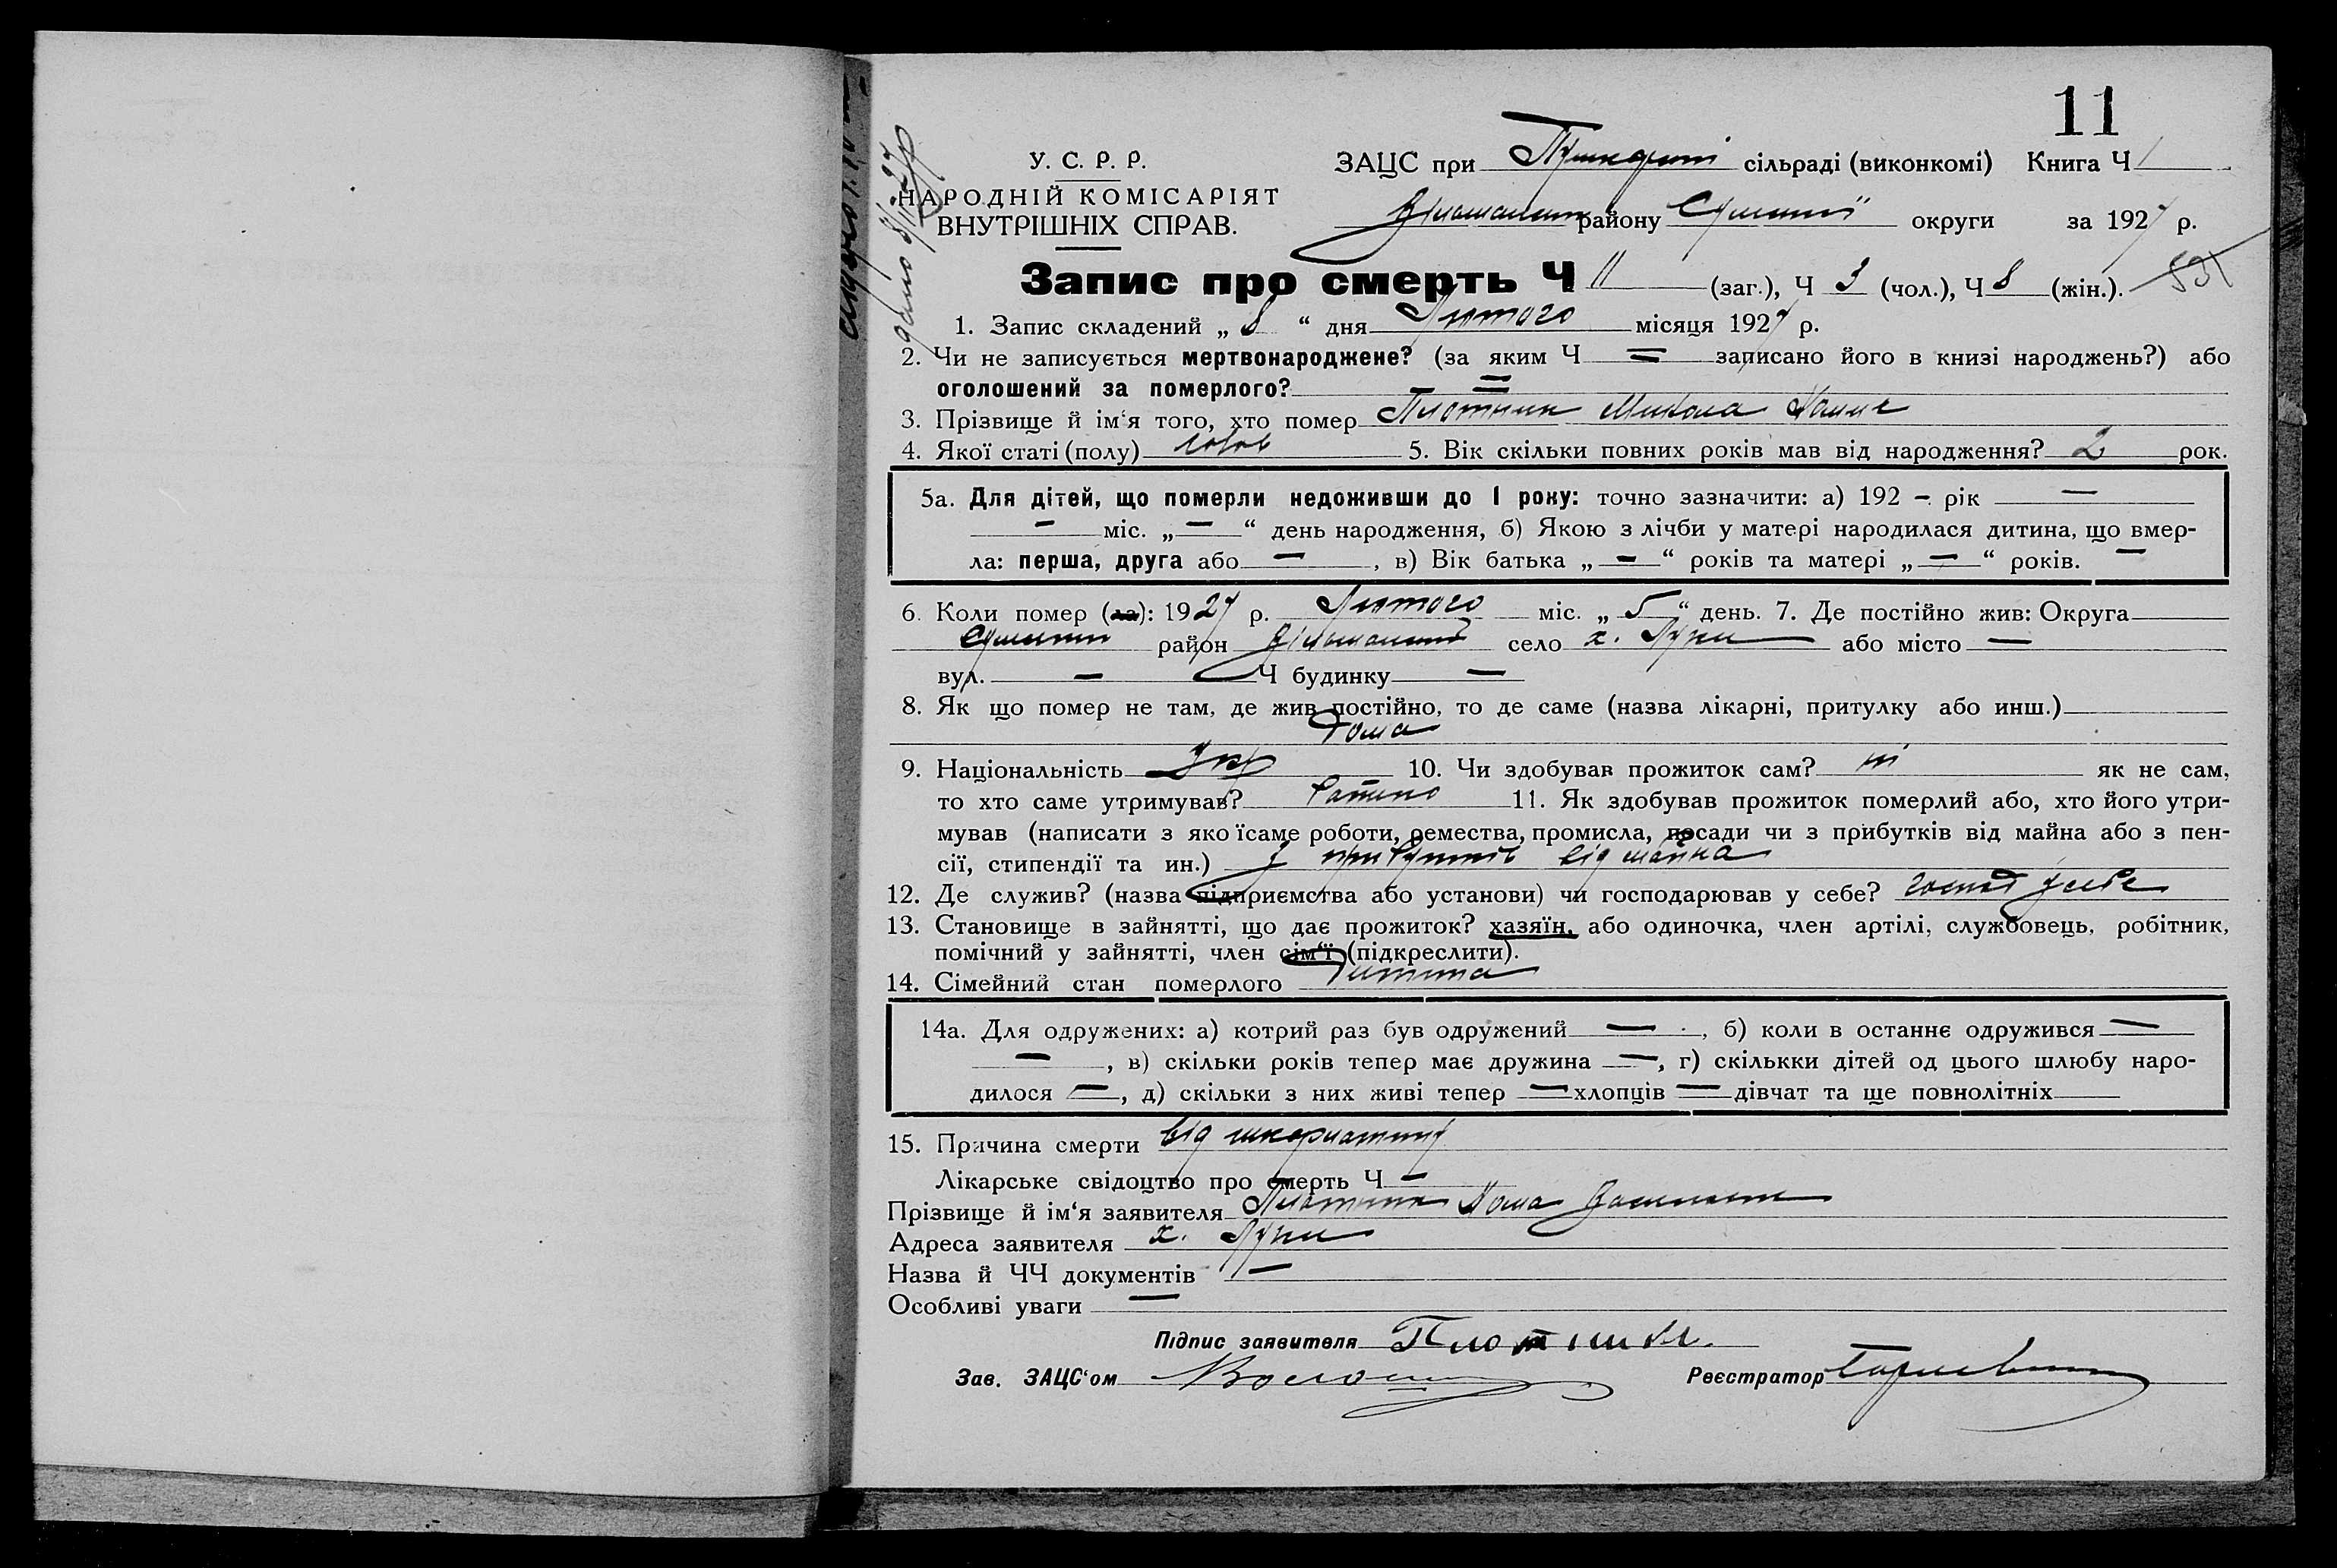 11
У. С. Р. Р.
НАРОДНІЙ КОМІСАРІЯТ
ВНУТРІШНІХ СПРАВ.
ЗАЦС при сільраді (виконкомі) Книга Ч 1
району округи за 1927 р.
Запис про смерть Ч 11 (заг.), Ч 3 (чол.), Ч 8 (жін.).
1. Запис складений „ 8 “ дня Лютого місяця 1927 р.
2. Чи не записується мертвонароджене? (за яким Ч — записано його в книзі народжень?) або
оголошений за померлого? —
3. Прізвище й ім‘я того, хто помер Плотник Микола Хомич
4. Якої статі (полу) чолов 5. Вік скільки повних років мав від народження? 2 рок.
5а. Для дітей, що померли недоживши до 1 року: точно зазначити: а) 192 – рік —
— міс. „ — “ день народження, б) Якою з лічби у матері народилася дитина, що вмер-
ла: перша, друга або —, в) Вік батька „ — “ років та матері „ — “ років. —
6. Коли помер (ла): 1927 р. Лютого міс. „ 5 “ день. 7. Де постійно жив: Округа
район село х. Луки або місто —
вул. — Ч будинку —
8. Як що помер не там, де жив постійно, то де саме (назва лікарні, притулку або инш.)
дома
9. Національність Укр 10. Чи здобував прожиток сам? ні як не сам,
то хто саме утримував? батько 11. Як здобував прожиток померлий або, хто його утри-
мував (написати з яко їсаме роботи, ремества, промисла, посади чи з прибутків від майна або з пен-
сії, стипендії та ин.) з прибутків від майна
12. Де служив? (назва підприємства або установи) чи господарював у себе? господ у себе
13. Становище в зайнятті, що дає прожиток? хазяїн, або одиночка, член артілі, службовець, робітник,
помічний у зайнятті, член сім‘ї (підкреслити).
14. Сімейний стан померлого Дитина
14а. Для одружених: а) котрий раз був одружений —, б) коли в останнє одружився —
—, в) скільки років тепер має дружина —, г) скількки дітей од цього шлюбу наро-
дилося —, д) скільки з них живі тепер — хлопців — дівчат та ще повнолітніх
15. Причина смерти від шкарлатини
Лікарське свідоцтво про смерть Ч —
Прізвище й ім‘я заявителя Плотник Хома
Адреса заявителя х. Луки
Назва й ЧЧ документів —
Особливі уваги —
Підпис заявителя
Зав. ЗАЦС‘ом
Реєстратор